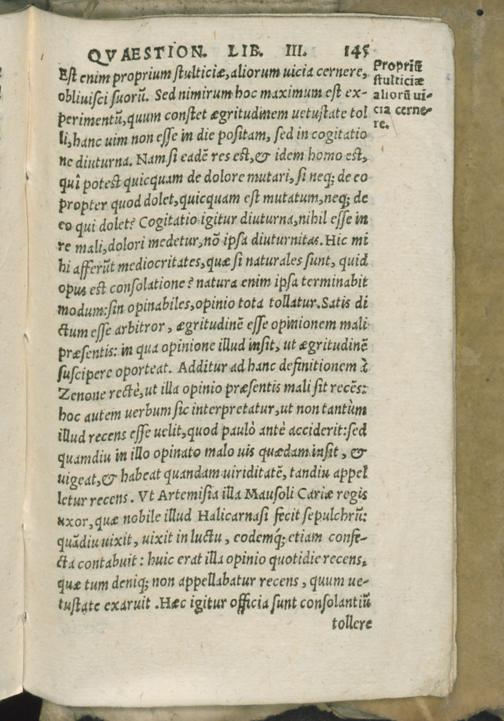 QVAESTION. LIB. III. 145
Est enim proprium stulticiæ, aliorum uicia cernere,
obliuisci suorũ. Sed nimirum hoc maximum est ex-
perimentũ, quum constet ægritudinem uetustate tol
li, hanc uim non esse in die positam, sed in cogitatio
ne diuturna. Nam si eadẽ res est, & idem homo est,
qui potest quicquam de dolore mutari, si neq; de eo
propter quod dolet, quicquam est mutatum, neq; de
eo qui dolet? Cogitatio igitur diuturna, nihil esse in
re mali, dolori medetur, nõ ipsa diuturnitas. Hic mi
hi afferũt mediocritates, quæ si naturales sunt, quid
opus est consolatione? natura enim ipsa terminabit
modum: sin opinabiles, opinio tota tollatur. Satis di
ctum esse arbitror, ægritudinẽ esse opinionem mali
præsentis: in qua opinione illud insit, ut ægritudinẽ
suscipere oporteat. Additur ad hanc definitionem à
Zenone rectè, ut illa opinio præsentis mali sit recẽs:
hoc autem uerbum sic interpretatur, ut non tantùm
illud recens esse uelit, quod paulò antè acciderit: sed
quamdiu in illo opinato malo uis quædam insit, &
uigeat, & habeat quandam uiriditatẽ, tandiu appel
letur recens. Vt Artemisia illa Mausoli Cariæ regis
uxor, quæ nobile illud Halicarnasi fecit sepulchrũ:
quãdiu uixit, uixit in luctu, eodemq; etiam confe-
cta contabuit: huic erat illa opinio quotidie recens,
quæ tum deniq; non appellabatur recens, quum ue-
tustate exaruit. Hæc igitur officia sunt consolantiũ
tollere
Propriũ
stulticiæ
aliorũ ui-
cia cerne-
re.